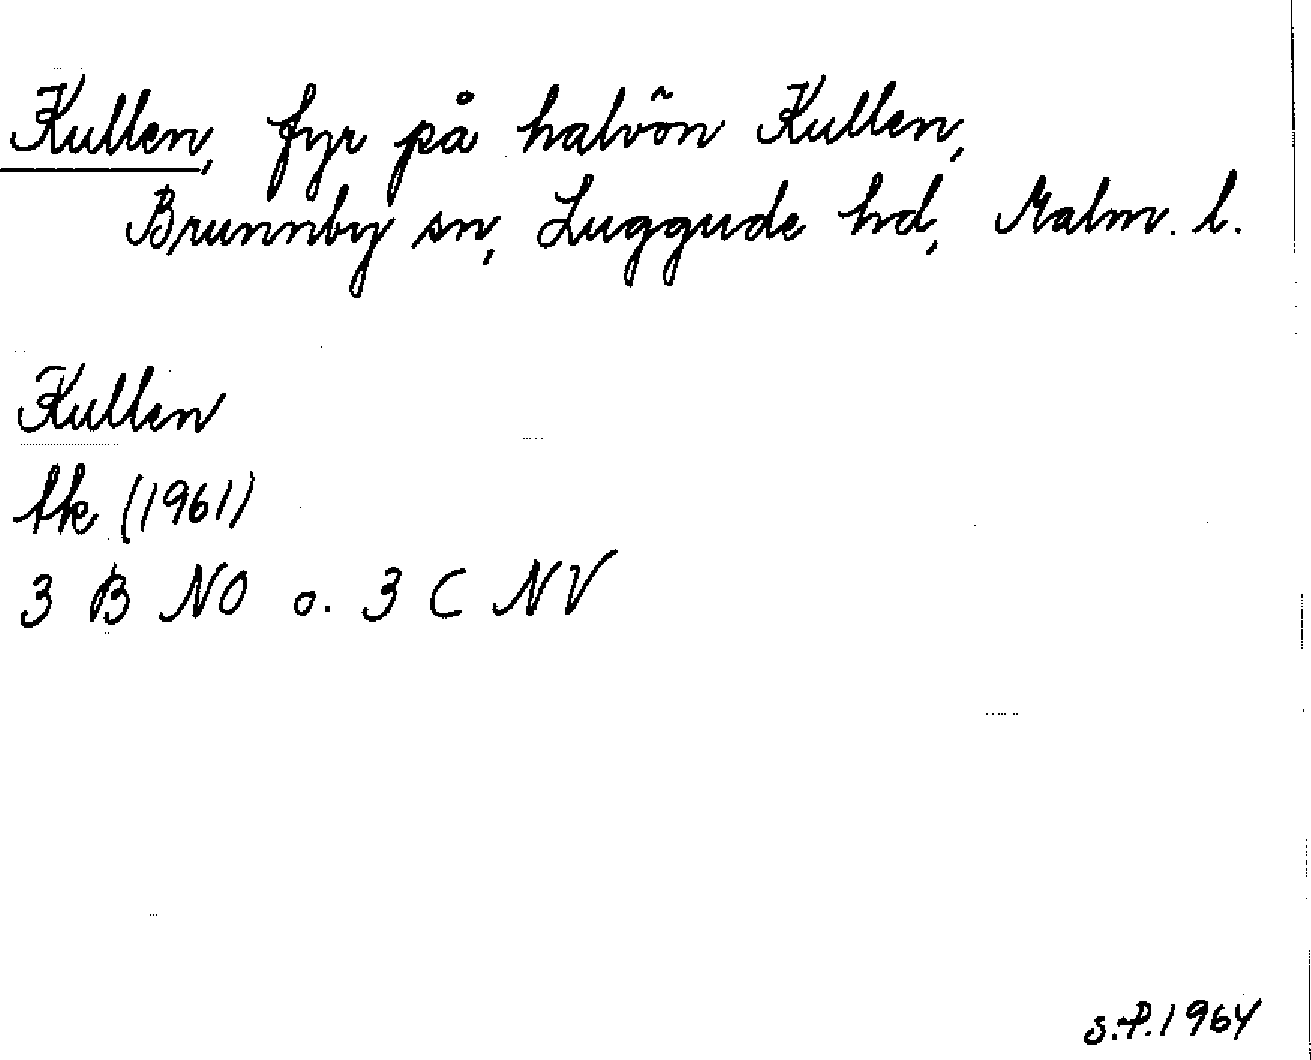 Kullen, fyr på halvön Kullen,
Brunnby sn, Luggude hd, Malm. l.
Kullen
tk (1961)
3 B NO o. 3 C NV
S.P. 1964